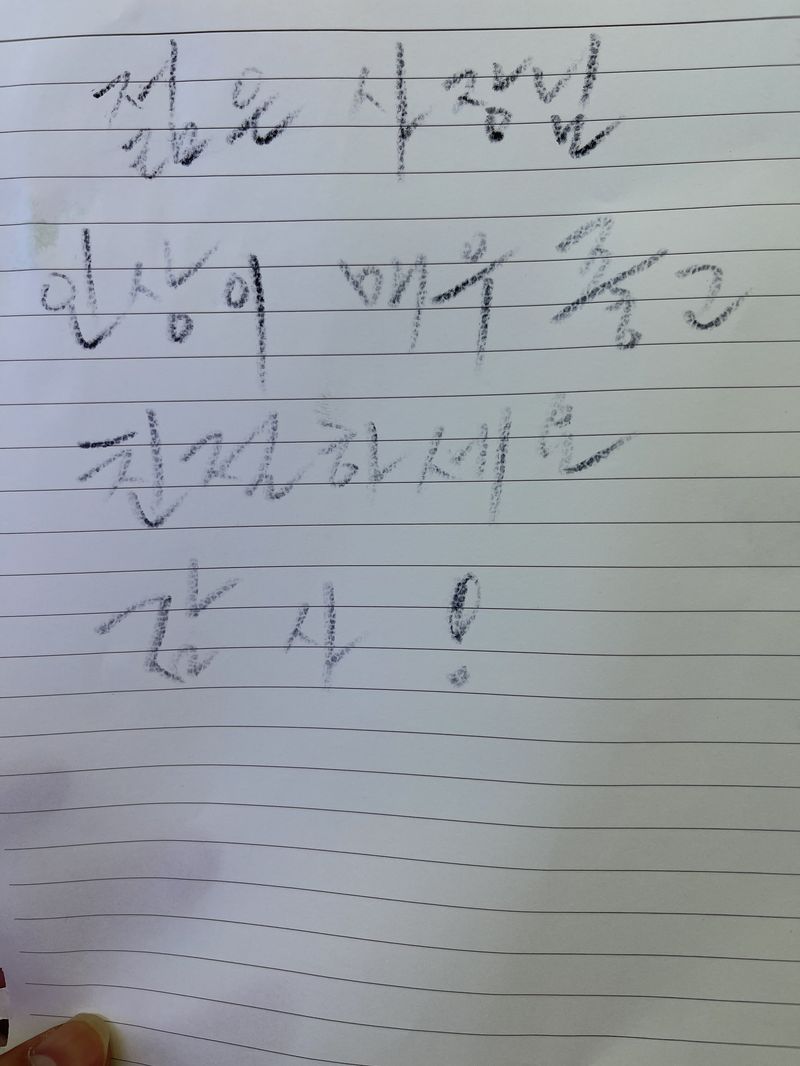 젊은 사장님
인상이 매우 좋고
친절하세요
감사!